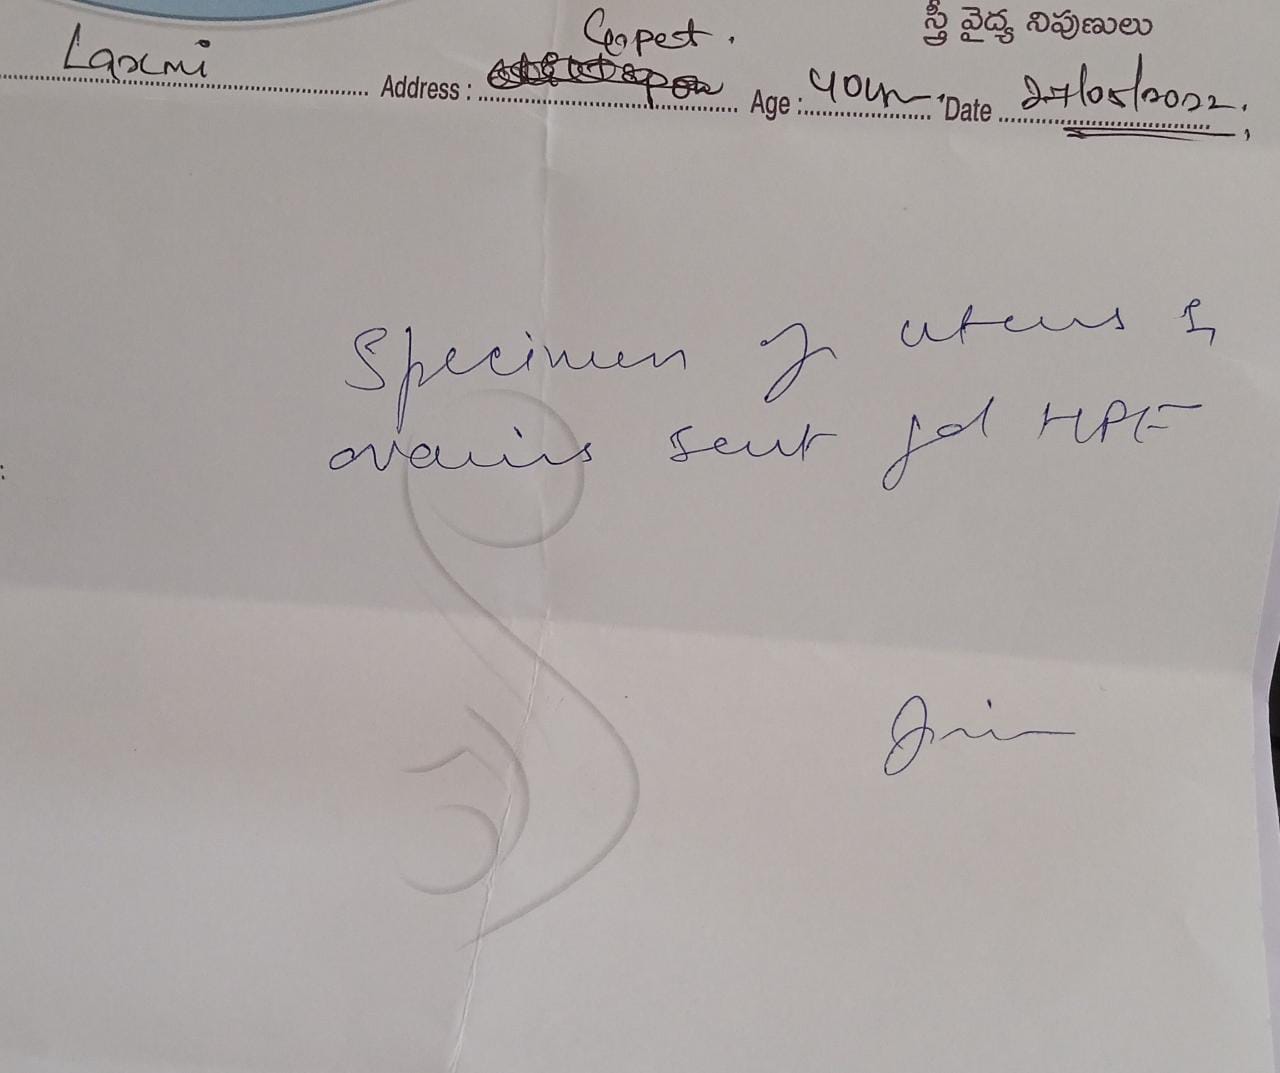 స్త్రీ వైద్య నిపుణులు
Laxmi Address : Age : 40yr Date 27/05/2022.
Specimen of uterus &
ovaries sent for HPE